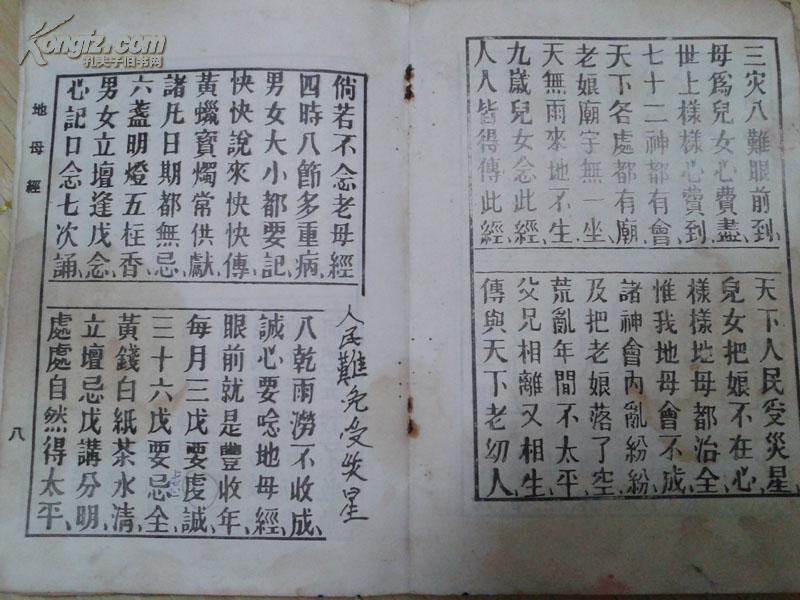 三灾八難眼前到、
天下人民受災星、
母爲兒女心費盡、
兒女把娘不在心、
世上樣樣心費到、
樣樣地母都治全、
七十二神都有會、
惟我地母會不成、
天下各處都有廟、
諸神會內亂紛紛、
老娘廟宇無一坐、
及把老娘落了空、
天無雨來地不生、
荒亂年間不太平、
九歲兒女念此經、
父兄相離又相生、
人人皆得傳此經、
傳與天下老幼人、
倘若不念老母經
人民難免受災星
四時八節多重病、
八乾雨澇不收成、
男女大小都要記
誠心要唸地母經、
快快說來快快傳、
眼前就是豐收年、
黃蠟寶燭常供獻、
每月三戊要虔誠、
諸凡日期都無忌、
三十六戊要忌全、
六盞明燈五柱香、
黃錢白紙茶水清、
男女立壇逢戊念、
立壇忌戊講分明、
心記口念七次誦、
處處自然得太平、
地母經
八
Kongfz.com
孔夫子旧书网